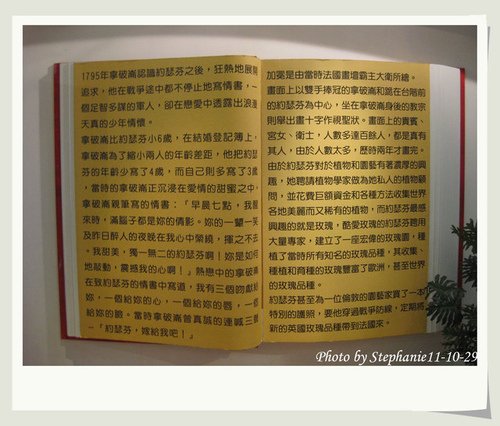 1795年拿破崙認識約瑟芬之後，狂熱地展開
追求，他在戰爭途中都不停止地寫情書，一
個足智多謀的軍人，卻在戀愛中透露出浪漫
天真的少年情懷。
拿破崙比約瑟芬小6歲，在結婚登記簿上，
拿破崙為了縮小兩人的年齡差距，他把約瑟
芬的年齡少寫了4歲，而自己則多寫了3歲
，當時的拿破崙正沉浸在愛情的甜蜜之中，
拿破崙親筆寫的情書：『早晨七點，我醒
來時，滿腦子都是妳的倩影。妳的一顰一笑
及昨日醉人的夜晚在我心中縈繞，揮之不去
。我甜美，獨一無二的約瑟芬啊！妳是如何
地敲動，震撼我的心啊！』熱戀中的拿破崙
在致約瑟芬的情書中寫道，我有三個吻獻給
妳，一個給妳的心，一個給妳的唇，一個
給妳的臉。當時拿破崙曾真誠的連喊三聲
－『約瑟芬，嫁給我吧！』
加冕是由當時法國畫壇霸主大衛所繪。
畫面上以雙手捧冠的拿破崙和跪在台階前
的約瑟芬為中心，坐在拿破崙身後的教宗
則舉出畫十字作祝聖狀。畫面上的貴賓、
宮女、衛士，人數多達百餘人，都是真有
其人，由於人數太多，歷時兩年才畫完。
由於約瑟芬對於植物和園藝有著濃厚的興
趣，她聘請植物學家做為她私人的植物顧
問，並花費巨額資金和各種方法收集世界
各地美麗而又稀有的植物，而約瑟芬最感
興趣的就是玫瑰，酷愛玫瑰的約瑟芬聘用
大量專家，建立了一座宏偉的玫瑰園，種
植了當時所有知名的玫瑰品種，其收集、
種植和育種的玫瑰豐富了歐洲，甚至世界
的玫瑰品種。
約瑟芬甚至為一位倫敦的園藝家買了一本
特別的護照，要他穿過戰爭防線，定期將
新的英國玫瑰品種帶到法國來。
Photo by Stephanie11-10-29